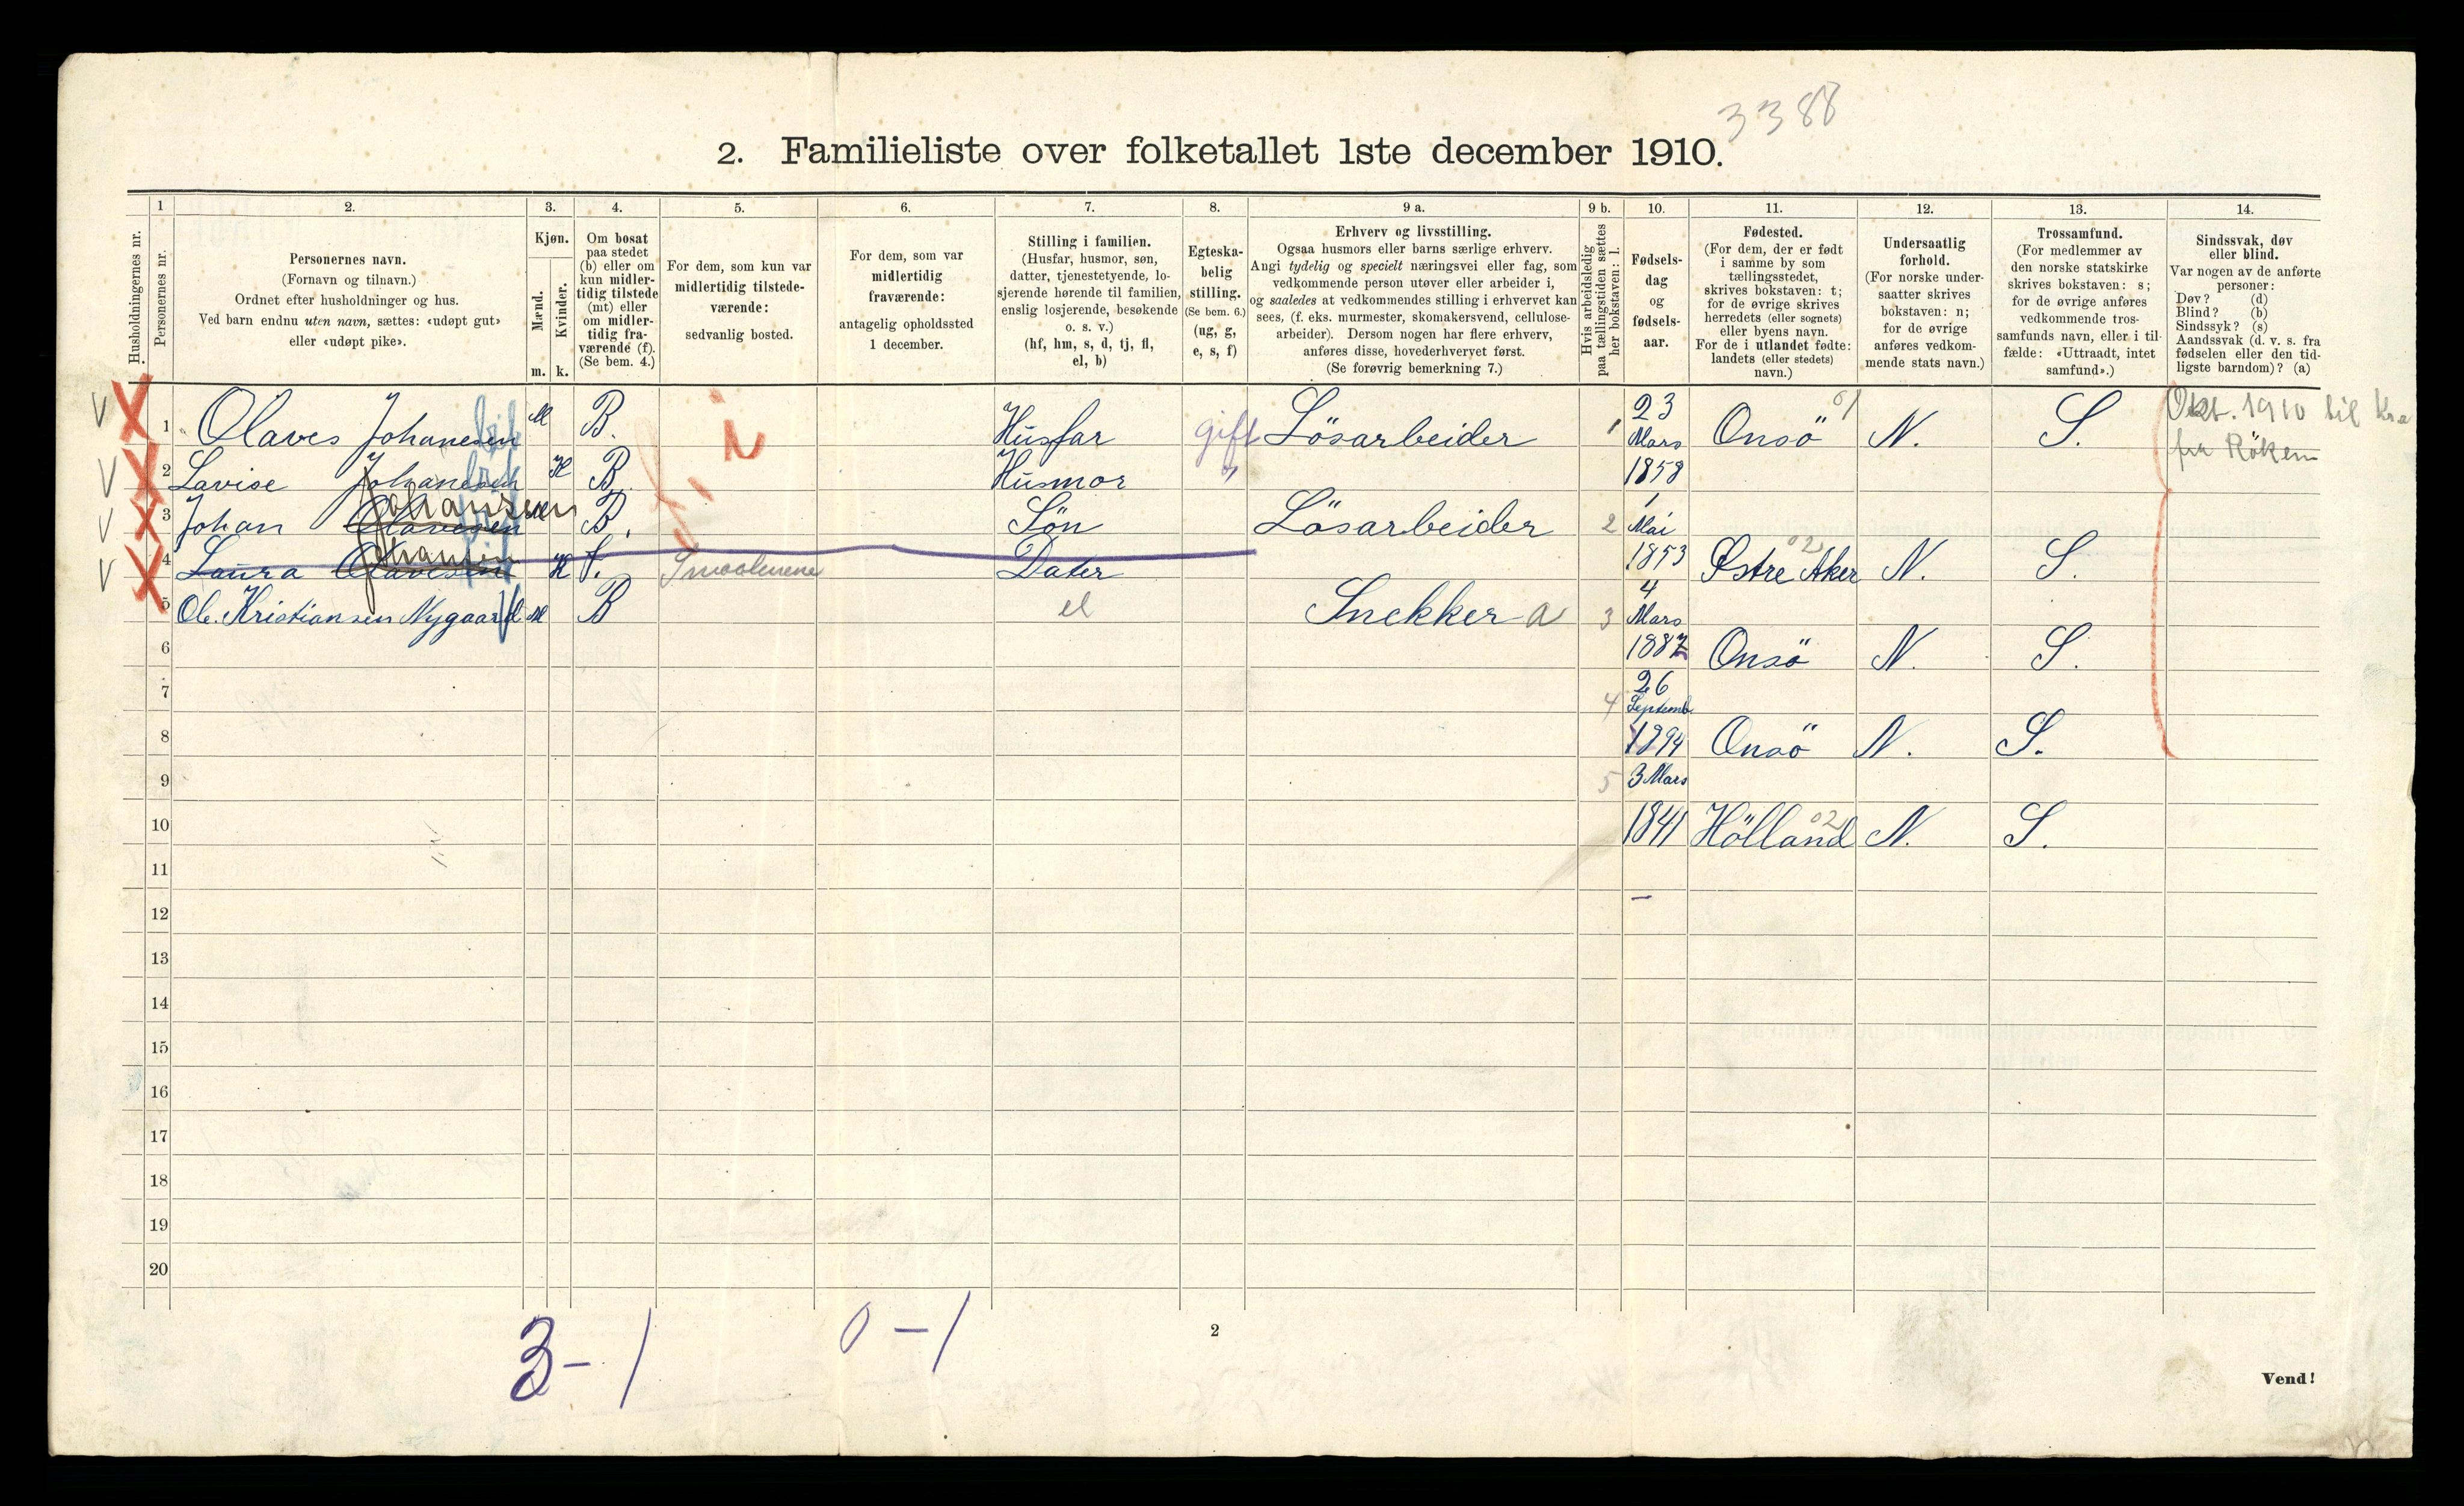 3388
2. Familieliste over folketallet 1ste december 1910.
Husholdningernes nr.
1
Personernes nr.
2.
Personernes navn.
(Fornavn og tilnavn.)
Ordnet efter husholdninger og hus.
Ved barn endnu uten navn, sættes: «udøpt gut»
eller «udøpt pike».
3.
Kjøn.
Mænd.
Kvinder.
m. k.
4.
Om bosat
paa stedet
(b) eller om
kun midler-
tidig tilstede
(mt) eller
om midler-
tidig fra-
værende (f).
(Se bem. 4.)
5.
For dem, som kun var
midlertidig tilstede-
værende:
sedvanlig bosted.
6.
For dem, som var
midlertidig
fraværende:
antagelig opholdssted
1 december.
7.
Stilling i familien.
(Husfar, husmor, søn,
datter, tjenestetyende, lo-
sjerende hørende til familien,
enslig losjerende, besøkende
o. s. v.)
(hf, hm, s, d, tj, fl,
el, b)
8.
Egteska-
belig
stilling.
(Se bem. 6.)
(ug, g,
e, s, f)
9 a.
Erhverv og livsstilling.
Ogsaa husmors eller barns særlige erhverv.
Angi tydelig og specielt næringsvei eller fag, som
vedkommende person utøver eller arbeider i,
og saaledes at vedkommendes stilling i erhvervet kan
sees, (f. eks. murmester, skomakersvend, cellulose-
arbeider). Dersom nogen har flere erhverv,
anføres disse, hovederhvervet først.
(Se forøvrig bemerkning 7.)
9 b.
Hvis arbeidsledig
paa tællingstiden sættes
her bokstaven: l.
10.
Fødsels-
dag
og
fødsels-
aar.
11.
Fødested.
(For dem, der er født
i samme by som
tællingsstedet,
skrives bokstaven: t;
for de øvrige skrives
herredets (eller sognets)
eller byens navn.
For de i utlandet fødte:
landets (eller stedets)
navn.)
12.
Undersaatlig
forhold.
(For norske under-
saatter skrives
bokstaven: n;
for de øvrige
anføres vedkom-
mende stats navn.)
13.
Trossamfund.
(For medlemmer av
den norske statskirke
skrives bokstaven: s;
for de øvrige anføres
vedkommende tros-
samfunds navn, eller i til-
fælde: «Uttraadt, intet
samfund».)
14.
Sindssvak, døv
eller blind.
Var nogen av de anførte
personer:
Døv? (d)
Blind? (b)
Sindssyk? (s)
Aandssvak (d. v. s. fra
fødselen eller den tid-
ligste barndom)? (a)
1 Olaves Johanesen M B. Husfar gift Lösarbeider 1 23 Mars 1858 Onsö 01 N. S. Okt. 1910 til Kra
fra Röken
2 Lavise Johanesen K B. Husmor " 2 1 Mai 1853 Østre Aker 02 N. S.
3 Johan Olavesen Johansen M B. Sön Lösarbeider 3 4 Mars 1887 Onsö N. S.
4 Laura Olavesen Johansen K f. Smaalenene Dater 4 26 Septemb 1894 Onsö N. S.
5 Ole Kristiansen Nygaard M B el Snekker a 5 3 Mars 1841 Hölland 02 N. S.
6
7
8
9
10
11
12
13
14
15
16
17
18
19
20
3 - 1
0 - 1
2
Vend!